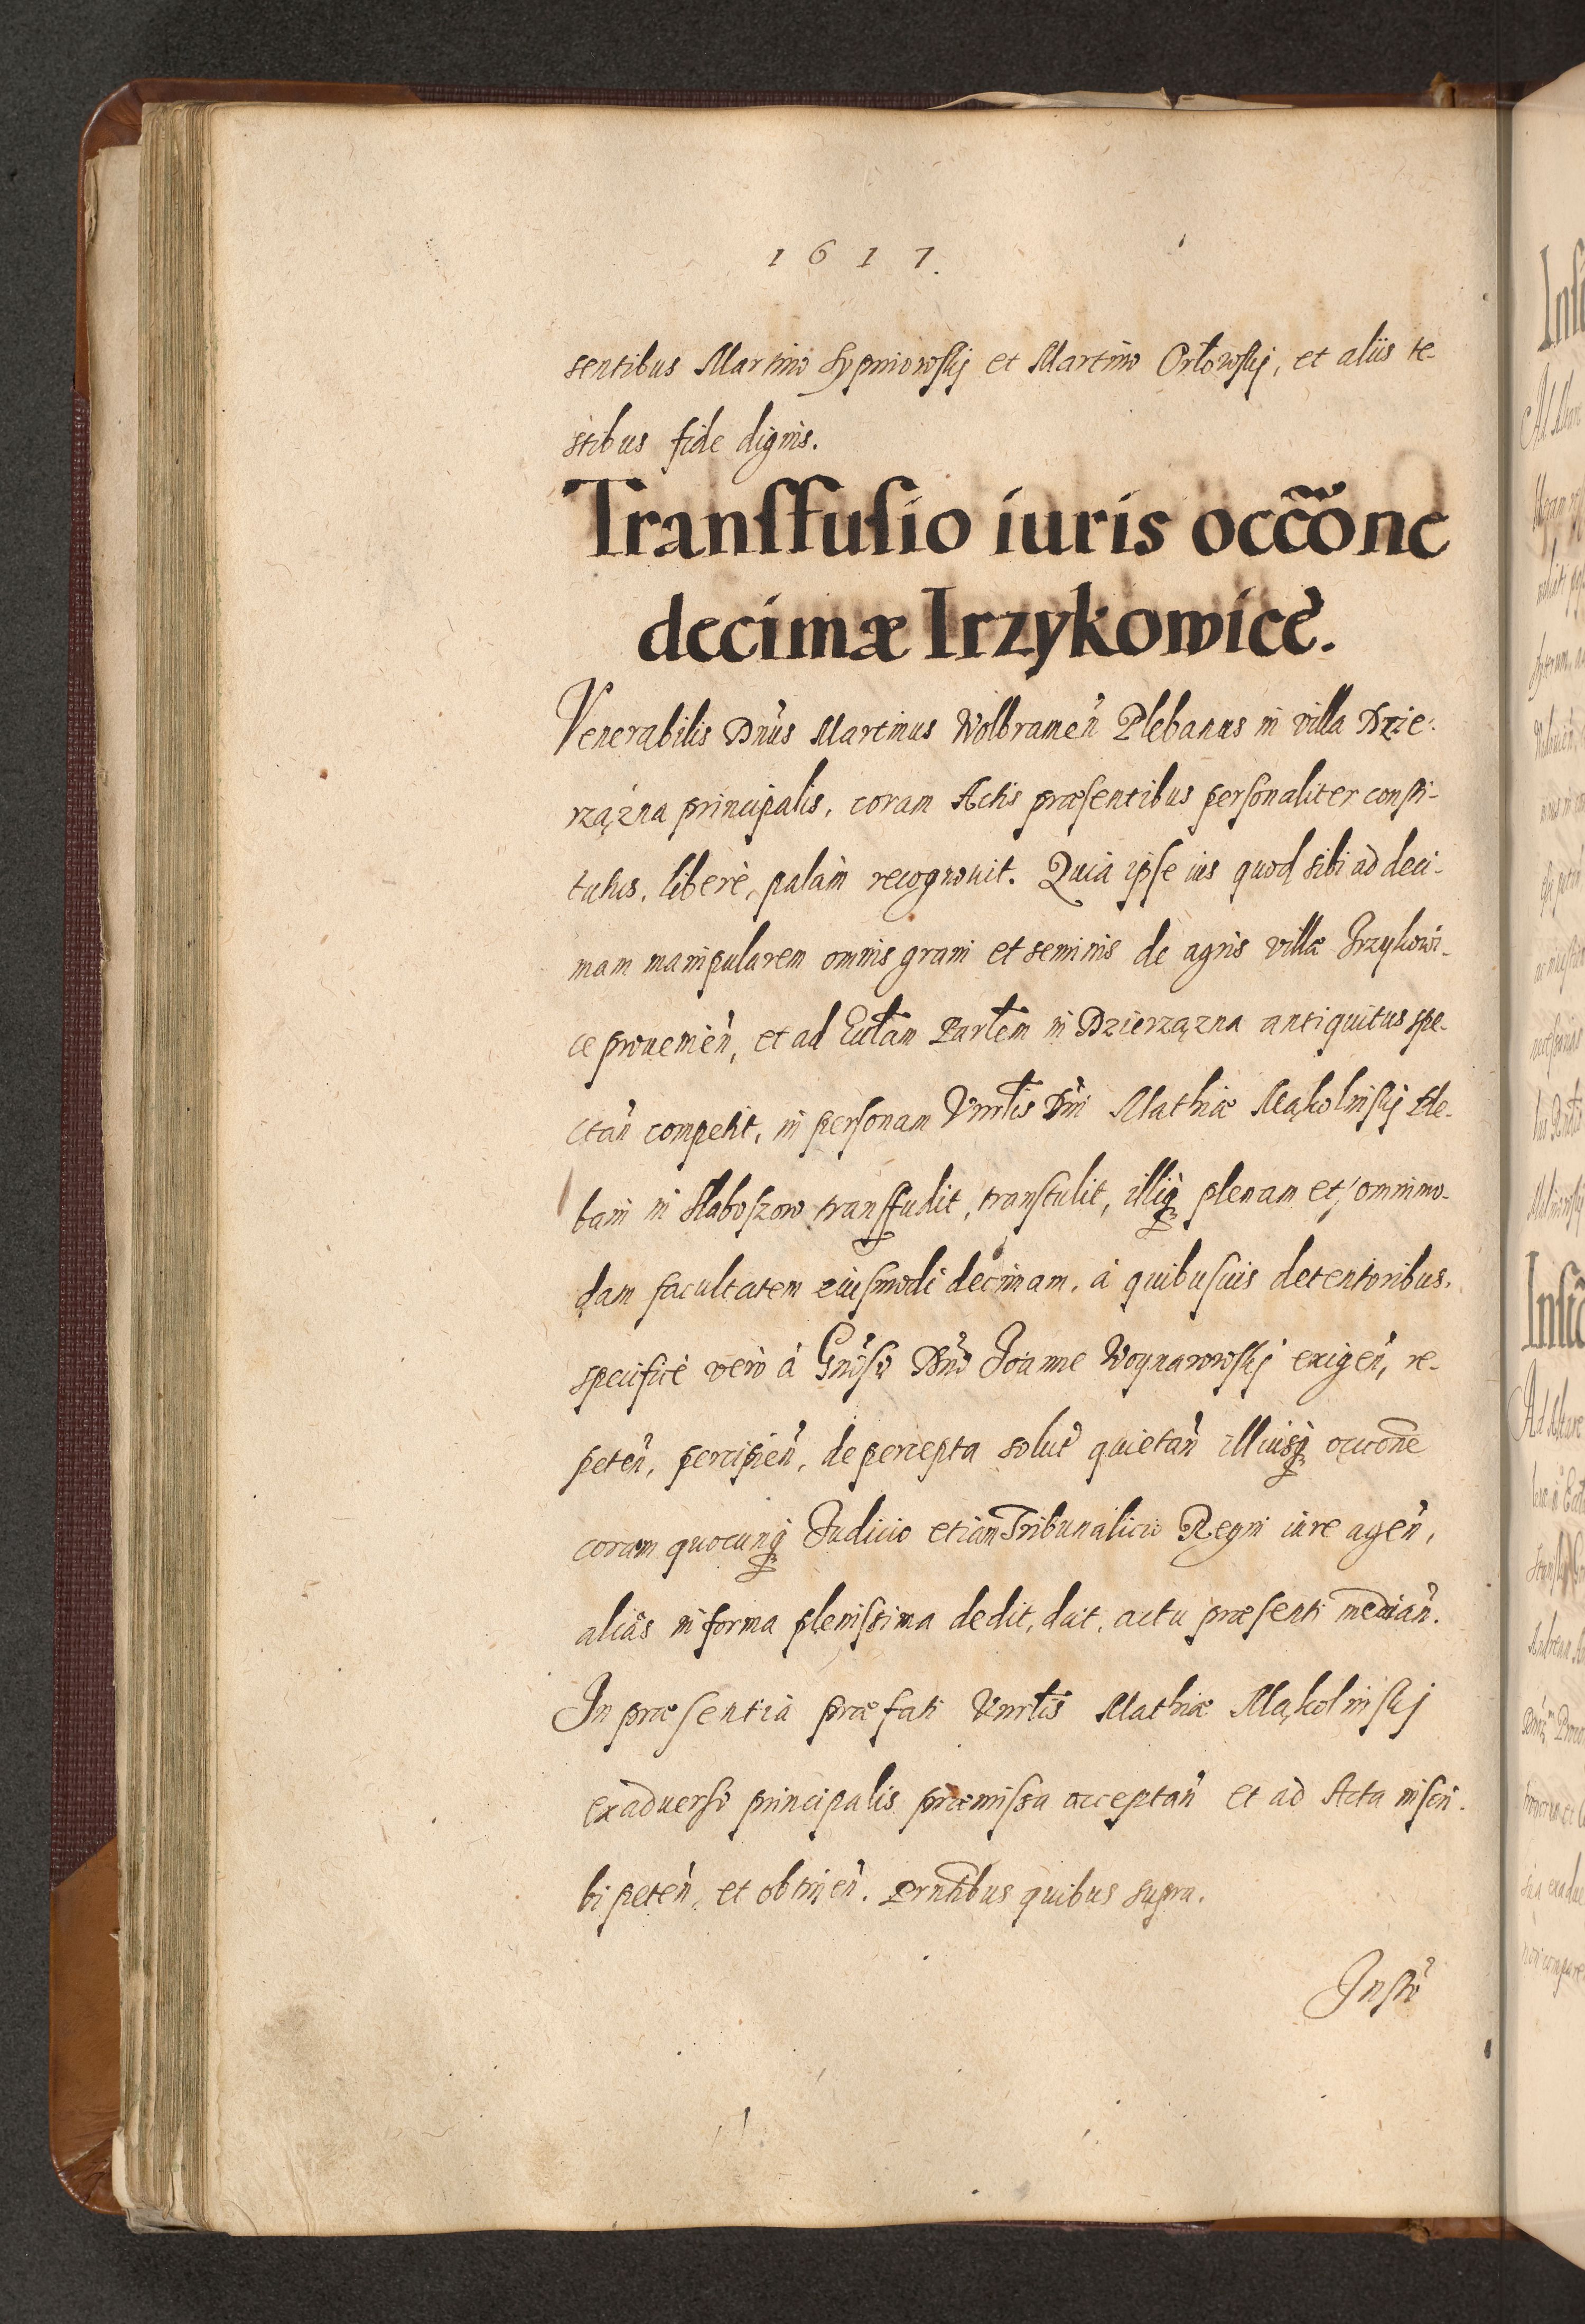 1617.
sentibus Martino Sypniowskj et Martino Orłowskj, et aliis te-
stibus fide dignis.
Transfusio iuris occõne
decimæ Irzykowicẽ.
Venerabilis Dnus Martinus Wolbramen̄ Plebanus in villa Dzie-
rzązna principalis, coram Actis præsentibus personaliter consti-
tutus, liberè, palàm recognouit. Quia ipse ius quod sibi ad deci-
mam manipularem omnis grani et seminis de agris villæ Irzykowi-
ce prouenien̄, et ad Eccłam Parłem in Dzierzązna antiquitus spe-
ctan̄ competit, in personam Vnrłis Dni Mathiæ Mąkolinskj Ple-
bani in Słaboszow transfudit, transtulit, illiq; plenam et omnimo-
dam facultatem eiusmodi decimam, à quibusuis detentoribus,
specificè verò à Gnoso Dno Joanne Woynarowskj exigen̄, re-
peten̄, percipien̄, de percepta solut̄ quietan̄ illiusq; occone
coram quocunq; Judicio etiam Tribunalicio Regni iure agen̄,
aliàs in forma plenissima dedit, dat, actu præsenti median̄.
In præsentia præfati Vnrłis Mathiæ Mąkolinskj
exaduerso principalis præmissa acceptan̄ et ad Acta inscri-
bi peten̄, et obtinen̄. Prntibus quibus supra.